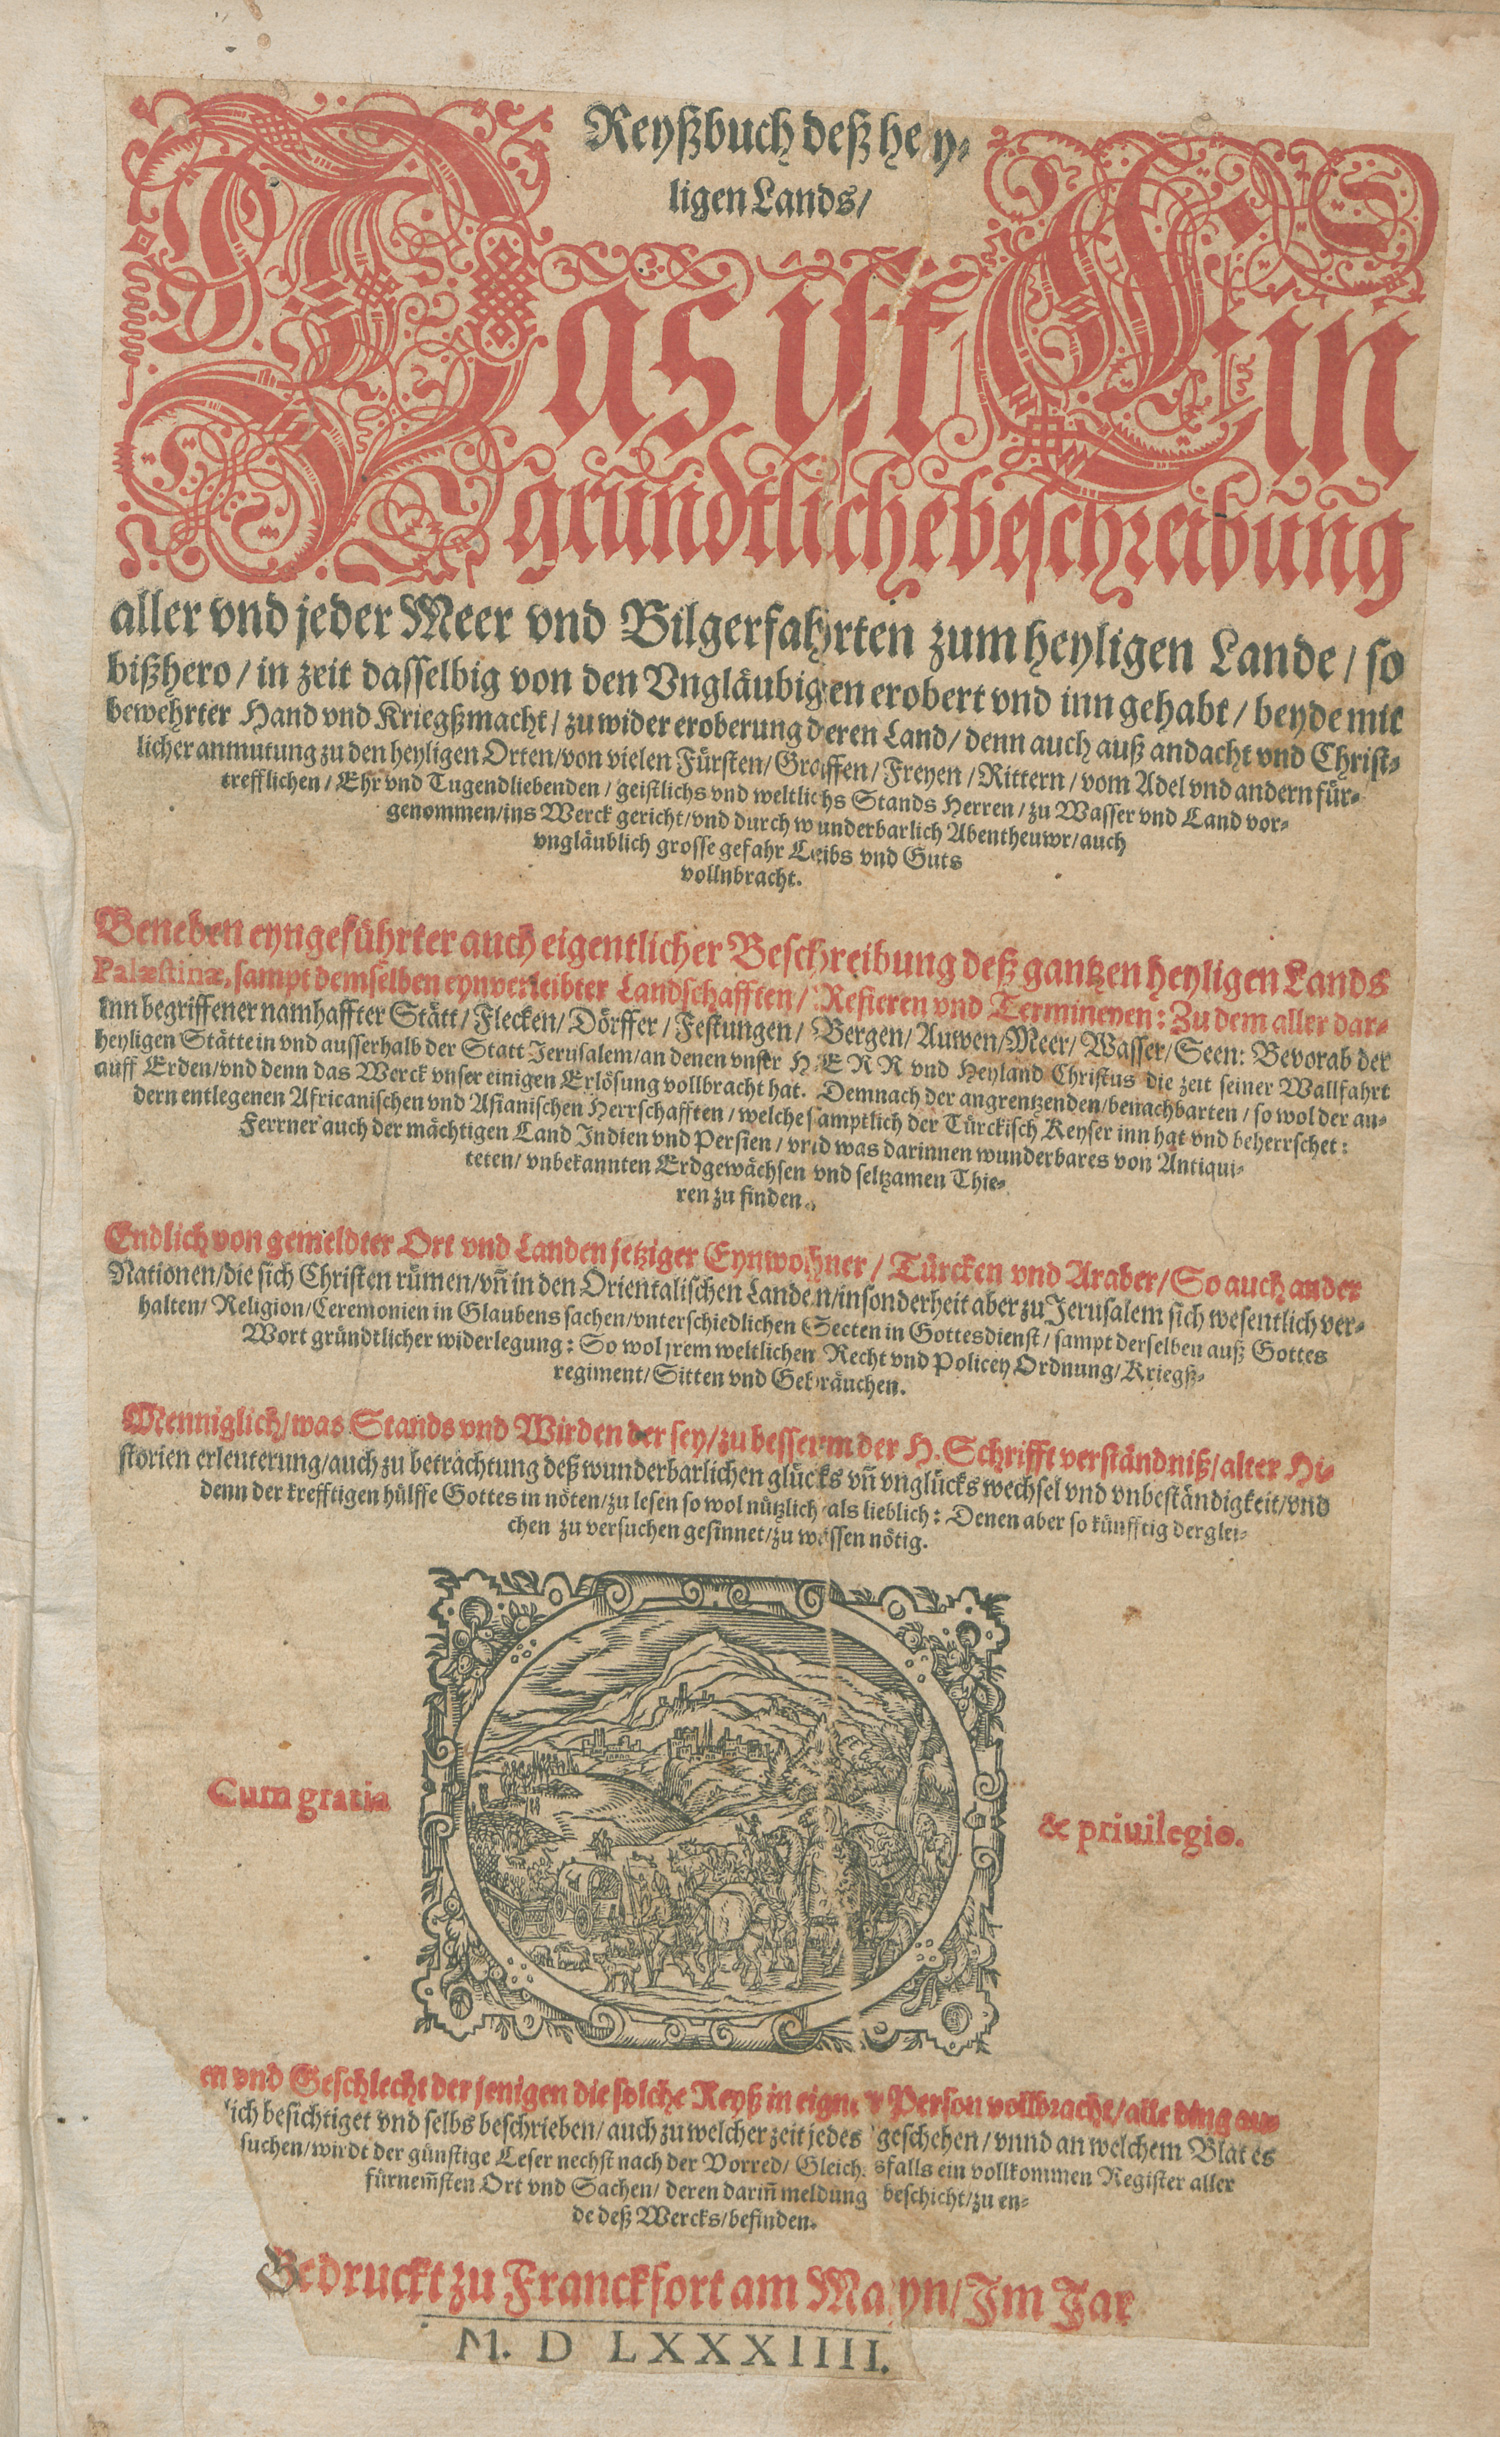 Reyßbuch deß hey-
ligen Lands/
Das ist Ein
grundtliche beschreibung
aller vnd jeder Meer vnd Bilgerfahrten zum heyligen Lande/ so
bißhero/ in zeit dasselbig von den Vngläubigen erobert vnd inn gehabt/ beyde mit
bewehrter Hand vnd Kriegßmacht/ zu wider eroberung deren Land/ denn auch auß andacht vnd Christ-
licher anmutung zu den heyligen Orten/ von vielen Fürsten/ Graffen/ Freyen/ Rittern/ vom Adel vnd andern für-
trefflichen/ Ehr vnd Tugendliebenden/ geistlichs vnd weltlichs Stands Herren/ zu Wasser vnd Land vor-
genommen/ ins Werck gericht/ vnd durch wunderbarlich Abentheuwr/ auch
vngläublich grosse gefahr Leibs vnd Guts
vollnbracht.
Beneben eyngeführter auch eigentlicher Beschreibung deß gantzen heyligen Lands
Palæstinæ, sampt demselben eynverleibter Landschafften/ Refieren vnd Termineyen: Zu dem aller dar-
inn begriffener namhaffter Stätt/ Flecken/ Dörffer/ Festungen/ Bergen/ Auwen/ Meer/ Wasser/ Seen: Bevorab der
heyligen Stätte in vnd ausserhalb der Statt Jerusalem/ an denen vnser HERR vnd Heyland Christus die zeit seiner Wallfahrt
auff Erden/ vnd denn das Werck vnser einigen Erlösung vollbracht hat. Demnach der angrentzenden/ benachbarten/ so wol der an-
dern entlegenen Africanischen vnd Asianischen Herrschafften/ welche samptlich der Türckisch Keyser inn hat vnd beherrschet:
Ferrner auch der mächtigen Land Indien vnd Persien/ vnd was darinnen wunderbares von Antiqui-
teten/ vnbekannten Erdgewächsen vnd seltzamen Thie-
ren zu finden.
Endlich von gemeldter Ort vnd Landen jetziger Eynwohner/ Türcken vnd Araber/ So auch ander
Nationen/ die sich Christen rümen/ vñ in den Orientalischen Landen/ insonderheit aber zu Jerusalem sich wesentlich ver-
halten/ Religion/ Ceremonien in Glaubens sachen/ vnterschiedlichen Secten in Gottesdienst/ sampt derselben auß Gottes
Wort gründtlicher widerlegung: So wol jrem weltlichen Recht vnd Policey Ordnung/ Kriegß-
regiment/ Sitten vnd Gebräuchen.
Menniglich/ was Stands vnd Wirden der sey/ zu besserm der H. Schrifft verständniß/ alter Hi-
storien erleuterung/ auch zu betrachtung deß wunderbarlichen glücks vñ vnglücks wechsel vnd vnbeständigkeit/ vnd
denn der krefftigen hülffe Gottes in nöten/ zu lesen so wol nützlich als lieblich: Denen aber so künfftig derglei-
chen zu versuchen gesinnet/ zu wissen nötig.
Cum gratia
& priuilegio.
en vnd Geschlecht der jenigen die solche Reyß in eigner Person vollbracht/ alle ding au-
lich besichtiget vnd selbs beschrieben/ auch zu welcher zeit jedes geschehen/ vnnd an welchem Blat es
suchen/ wirdt der günstige Leser nechst nach der Vorred/ Gleichsfalls ein vollkommen Register aller
fürnem̃sten Ort vnd Sachen/ deren dariñ meldung beschicht/ zu en-
de deß Wercks/ befinden.
Gedruckt zu Franckfort am Mayn/ Im Jar
M. D LXXXIIII.